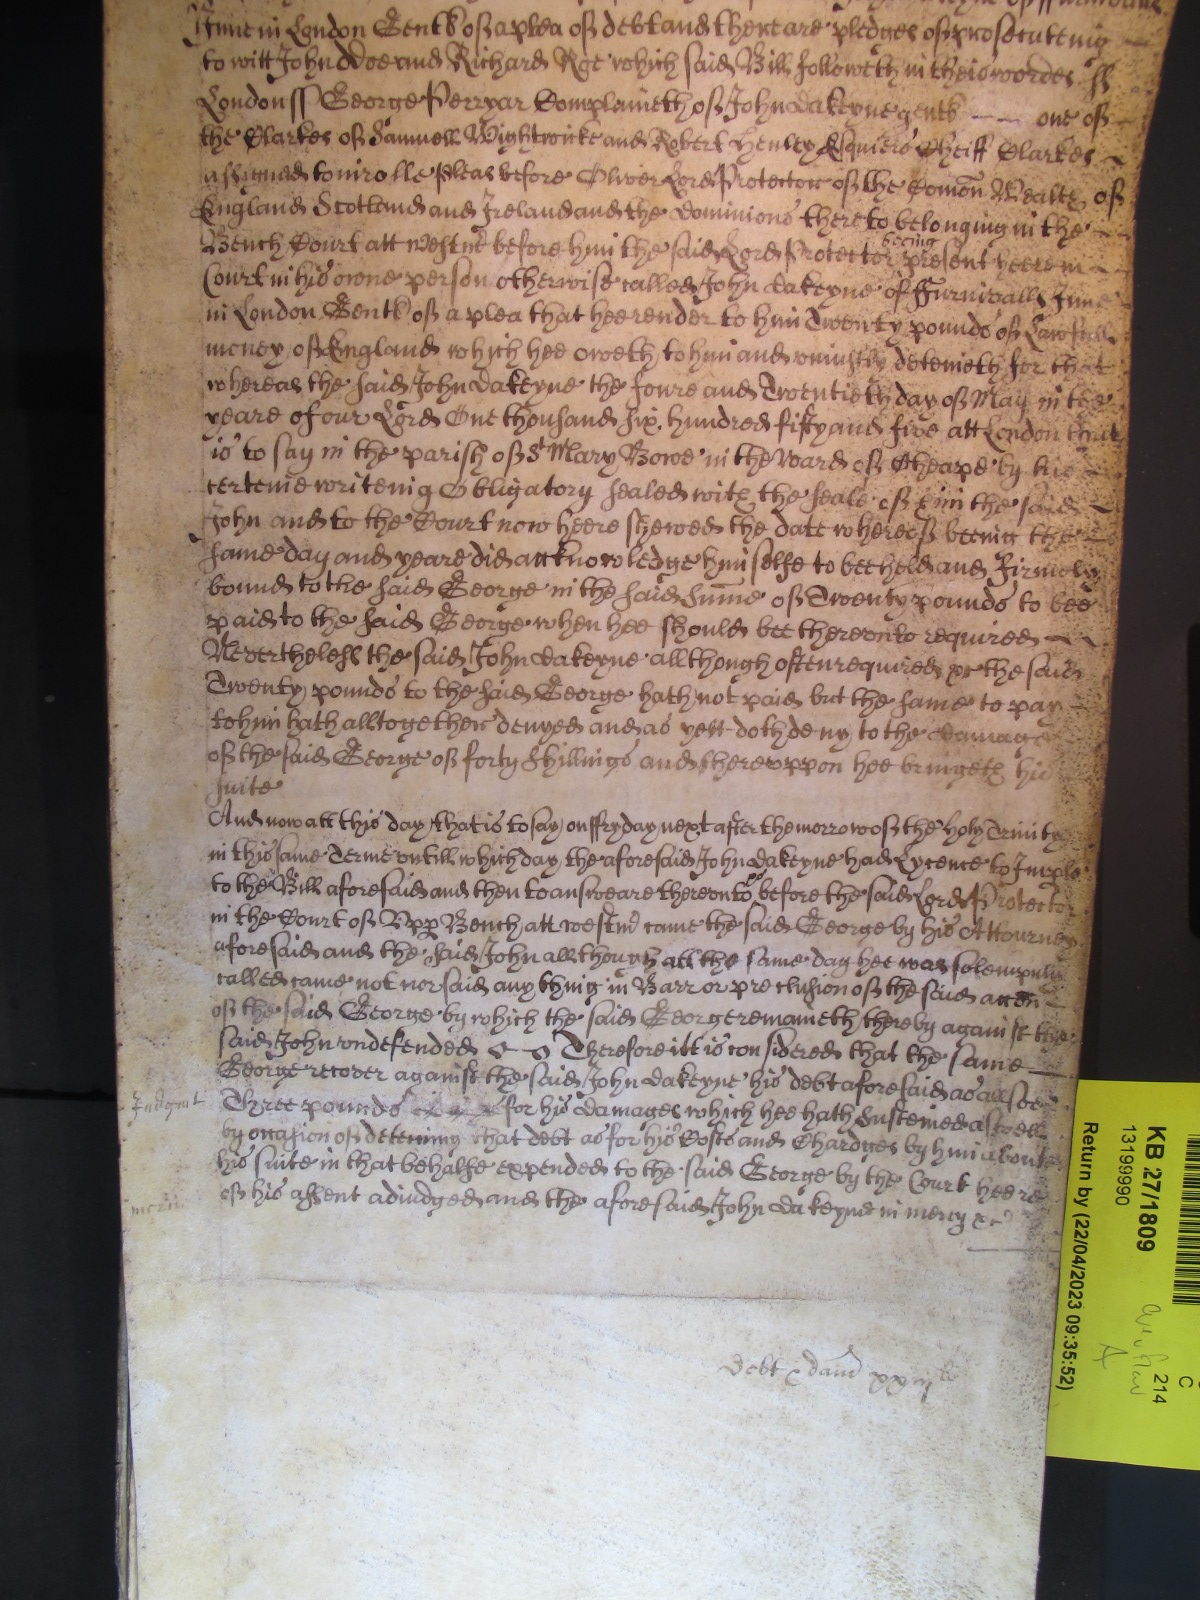 Inne in London Gent of a plea of debt and there are pledges of prosecuteing
to witt John Doe and Richard Roe which said Bill followeth in theis wordes ss
London ss George Perryar Complaineth of John Dakeyne gent one of
the Clarkes of Samuell Wightwicke and Robert Henley Esquiers Cheiff Clarkes
assigned to inrolle Pleas before Oliver Lord Protector of the Comon Wealth of
England Scotland and Ireland and the Dominions thereto belonging in the
Bench Court att Westm before him the said Lord Protector beeing present heere in
Court in his owne person otherwise called John Dakeyne of Furnivalls Inne
in London Gent of a plea that hee render to him Twenty pounds of Lawfull
money of England which hee oweth to him and uniustly deteineth for that
whereas the said John Dakeyne the fowre and Twentieth day of May in the
yeare of our Lord One thousand six hundred fifty and five att London that
is to say in the parish of St Mary Bowe in the Ward of Cheape by his
certeine writeing Obligatory sealed with the seale of him the said
John and to the Court now heere shewed the date whereof beeing the
same day and yeare did acknowledge himselfe to bee held and firmely
bound to the said George in the said sume of Twenty pounds to bee
paid to the said George when hee should bee thereunto required
Neverthelesse the said John Dakeyne allthough often required &c the said
Twenty pounds to the said George hath not paid but the same to pay
to him hath alltogether denyed and as yett doth deny to the damage
of the said George of forty shillings and thereuppon hee bringeth his
suite
And now att this day that is to say on ffryday next after the morrow of the holy Trinity
in this same Terme untill which day the aforesaid John Dakeyne had Lycence to Imple
to the Bill aforesaid and then to answeare thereunto before the said Lord Protector
in the Court of Upp Bench att westm came the said George by his Attourney
aforesaid and the said John allthough att the same day hee was solempnly
called came not nor said any thing in Barr or preclusion of the said accon
of the said George by which the said George remaineth thereby against the
said John undefended Therefore itt is considered that the same
George recover against the said John Dakeyne his debt aforesaid as allsoe
Judgmt Three pounds for his damages which hee hath susteined aswell
by occasion of deteining that debt as for his Costs and Chardges by him about
his suite in that behalfe expended to the said George by the Court heere
of his assent adiudged and the aforesaid John Dakeyne in mercy &c
Debt & dam xxiij
KB 27/1809
13199990
Return by (22/04/2023 09:35:52)
C
214
A